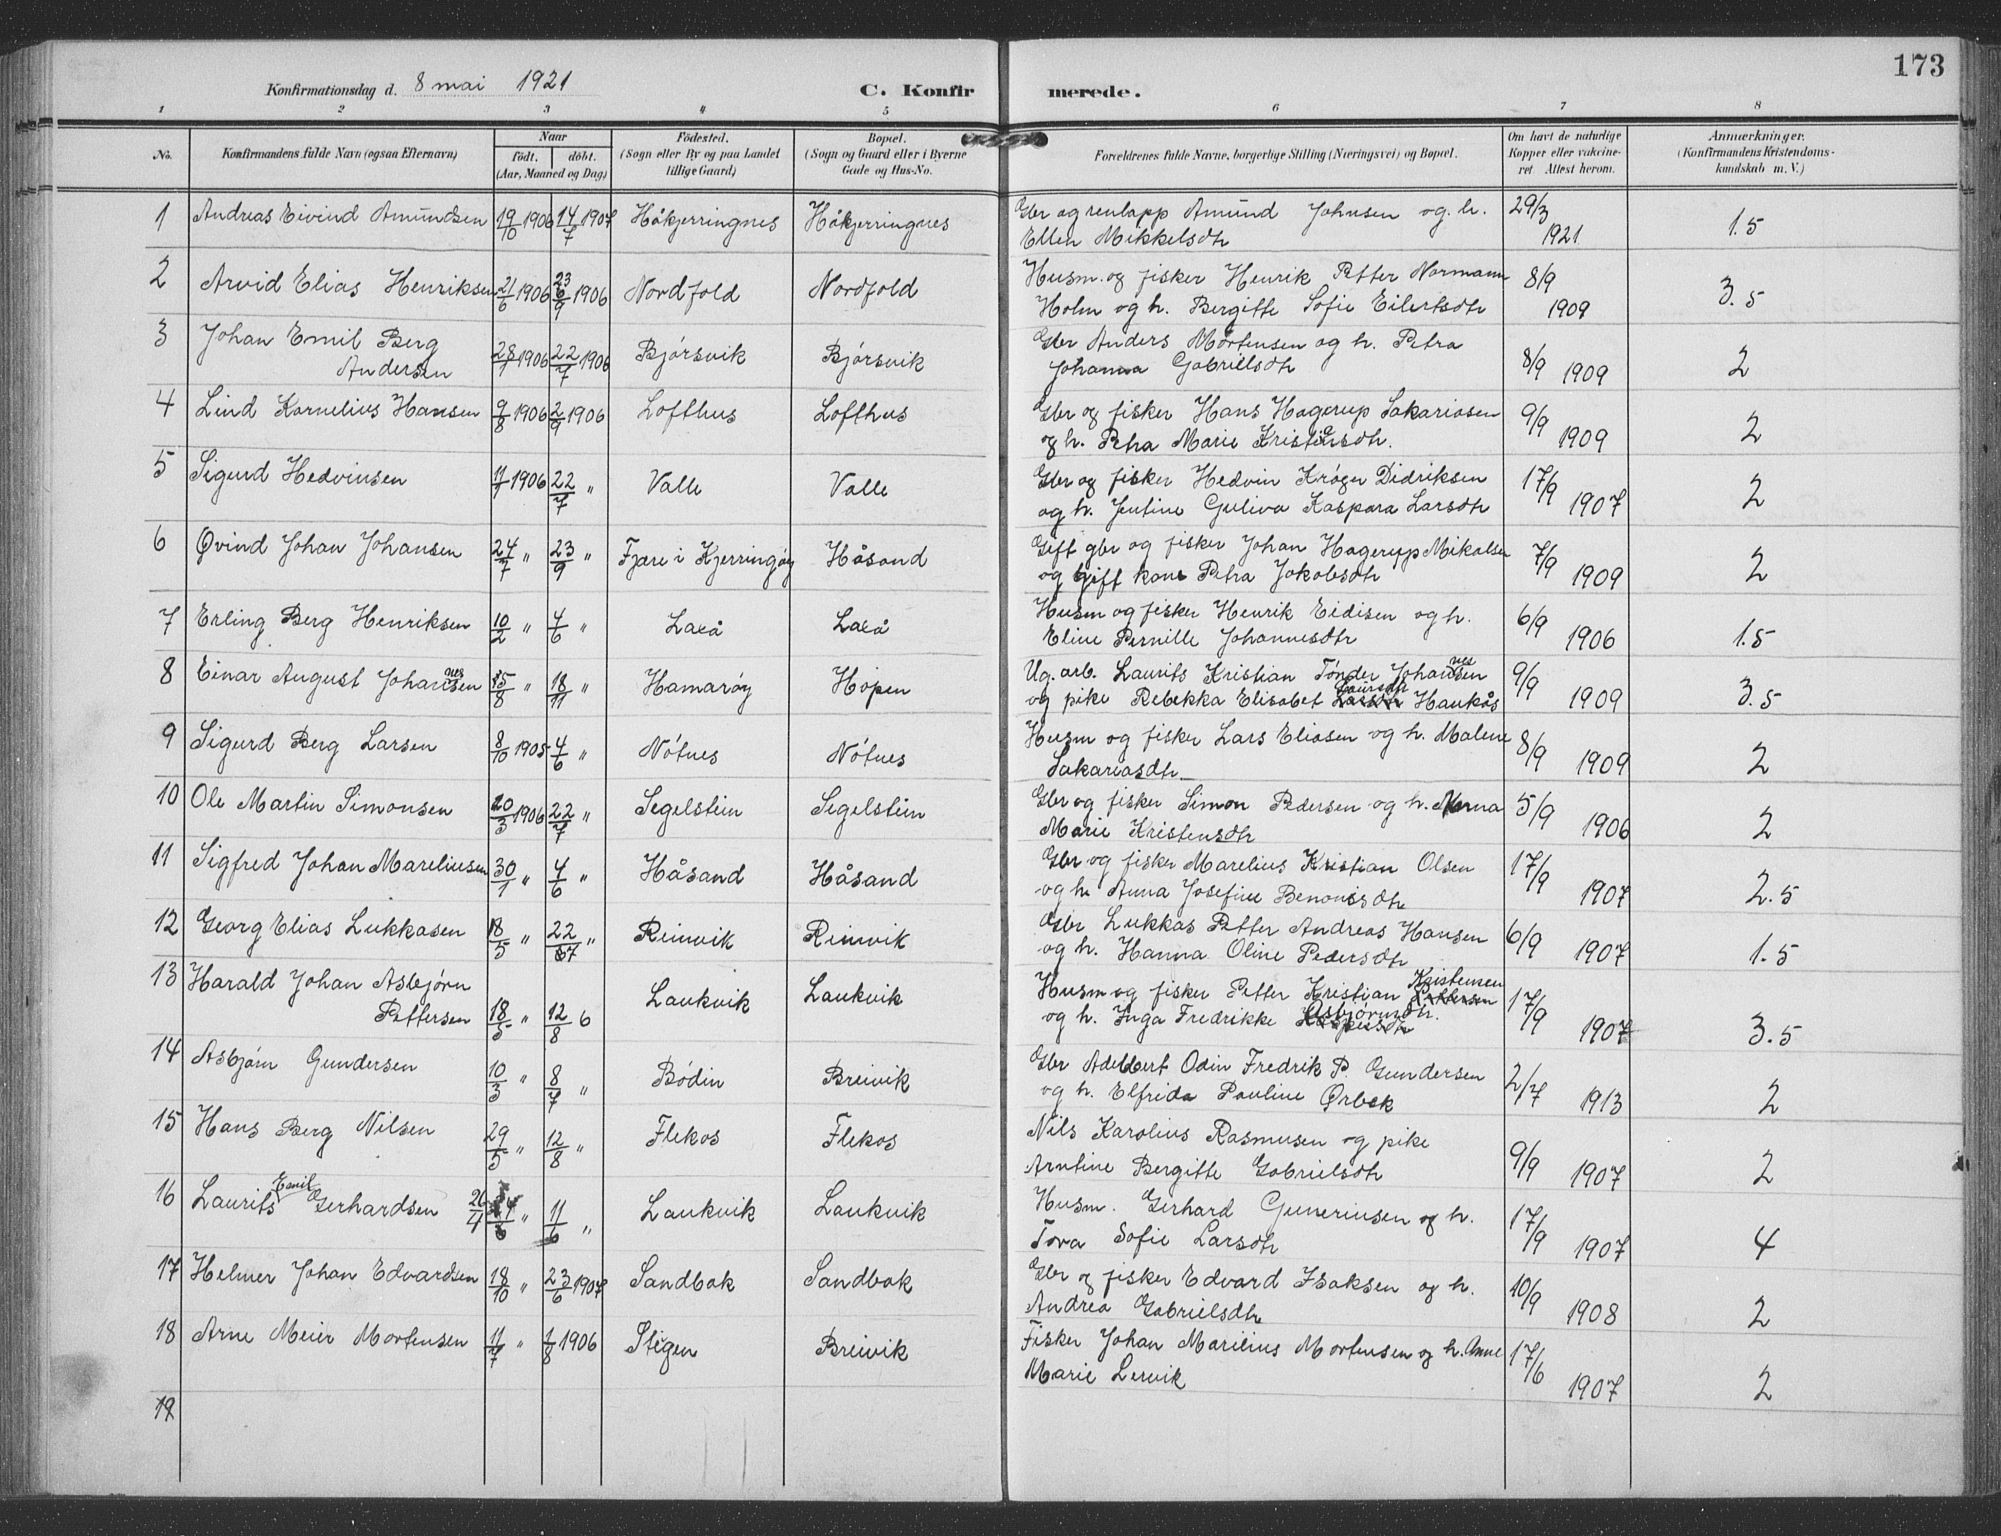 173
Konfirmationsdag d. 8 mai 1921
C. Konfirmerede.
1 2 3 4 5 6 7 8
No.
Konfirmandens fulde Navn (ogsaa Efternavn)
Naar
født. døbt.
(Aar, Maaned og Dag)
Fødested.
(Sogn eller By og paa Landet
tillige Gaard)
Bopæl.
(Sogn og Gaard eller i Byerne
Gade og Hus-No.
Forældrenes fulde Navne, borgerlige Stilling (Næringsvei) og Bopæl.
Om havt de naturlige
Kopper eller vakcine-
ret Attest herom.
Anmærkninger.
(Konfirmandens Kristendoms-
kundskab m. V.)
1 Andreas Eivind Amundsen 19/10 1906 14/7 1907 Håkjerringnes Håkjerringnes Gbr og renlapp Amund Johnsen og h. 29/3
Ellen Mikkelsdtr 1921 1.5
2 Arvid Elias Henriksen 21/6 1906 23/9 1906 Nordfold Nordfold Husm. og fisker Henrik Petter Normann 8/9
Holm og h. Bergitte Sofie Eilertsdtr 1909 3.5
3 Johan Emil Berg Gbr Anders Mortensen og h. Petra
Andersen 28/1 1906 22/7 1906 Bjørsvik Bjørsvik Johanna Gabrielsdtr 8/9 1909 2
4 Lind Kornelius Hansen 9/8 1906 2/9 1906 Lofthus Lofthus Gbr og fisker Hans Hagerup Sakariasen 9/9
og h. Petra Marie Kristiansdtr. 1909 2
5 Sigurd Hedvinsen 11/1 1906 22/7 " Valle Valle Gbr og fisker Hedvin Krøger Didriksen 17/9
og h. Jentine Guliva Kaspara Larsdtr 1907 2
6 Øvind Johan Johansen 24/7 " 23/9 " Fjære i Kjerringøy Håsand Gift gbr og fisker Johan Hagerupp Mikalsen 7/9
og gift kone Petra Jakobsdtr 1909 2
7 Erling Berg Henriksen 10/2 " 4/6 " Laxå Laxå Husm og fisker Henrik Eidisen og h. 6/9
Eline Pernille Johannesdtr 1906 1.5
8 Einar August Johannessen 15/8 " 18/11 " Hamarøy Hopen Ug. arb. Laurits Kristian Tønder Johannessen 9/9
og pike Rebekka Elisabet Haukås 1909 3.5
9 Sigurd Berg Larsen 8/10 1905 4/6 " Nøtnes Nøtnes Husm og fisker Lars Eliasen og h. Malene 8/9
Sakariasdtr 1909 2
10 Ole Martin Simonsen 20/3 1906 22/7 " Segelstein Segelstein Gbr og fisker Simon Pedersen og h. Norna 5/9
Marie Kristensdtr 1906 2
11 Sigfred Johan Mareliusen 30/1 " 4/6 " Håsand Håsand Gbr og fisker Marelius Kristian Olsen 17/9
og h. Anna Josefine Benonisdtr 1907 2.5
12 Georg Elias Lukkasen 18/5 " 22/7 " Reinvik Reinvik Gbr Lukkas Petter Andreas Hansen 6/9
og h. Hanna Oline Pedersdtr 1907 1.5
13 Harald Johan Asbjørn Laukvik Laukvik Husm og fisker Petter Kristian Kristensen 17/9
Pettersen 18/5 " 12/8 6 og h. Inga Fredrikke Asbjørnsdtr. 1907 3.5
14 Asbjørn Gundersen 10/3 " 8/7 " Bodin Breivik Gbr Adelbert Odin Fredrik P. Gundersen 2/7
og h. Elfrida Pauline Ørbek 1913 2
15 Hans Berg Nilsen 29/5 12/8 " Flekos Flekos Nils Karolius Rasmusen og pike 9/9
Arntine Bergitte Gabrielsdtr 1907 2
16 Laurits Emil Gerhardsen 26/4 " 11/6 " Laukvik Laukvik Husm. Gerhard Guneriusen og h. 17/9
Tora Sofie Larsdtr 1907 4
17 Helmer Johan Edvardsen 18/10 " 23/6 1907 Sandbak Sandbak Gbr og fisker Edvard Isaksen og h. 10/9
Andrea Gabrielsdtr 1908 2
18 Arne Meier Mortensen 11/7 " 1/8 1906 Steigen Breivik Fisker Johan Marilius Mortensen og h. Anne 17/6
Marie Lervik 1907 2
19